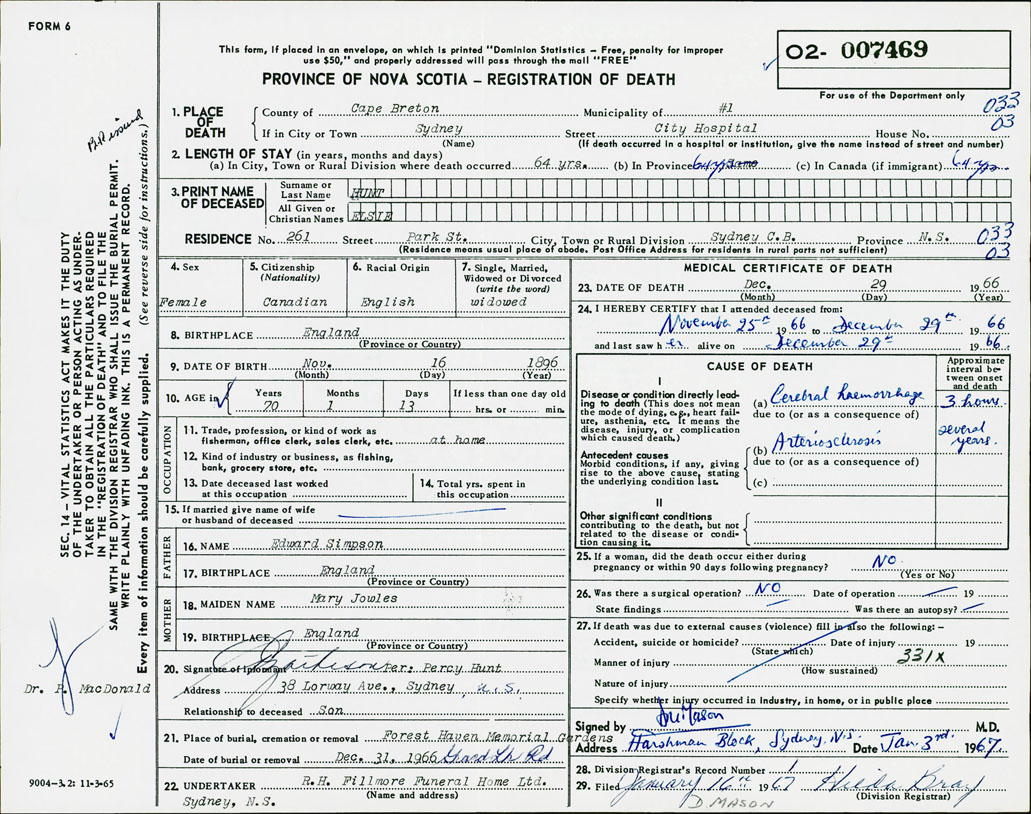 FORM 6
This form, if placed in an envelope, on which is printed "Dominion Statistics – Free, penalty for improper
use $50," and properly addressed will pass through the mail "FREE"
PROVINCE OF NOVA SCOTIA – REGISTRATION OF DEATH
02- 007469
For use of the Department only
1. PLACE OF DEATH
County of Cape Breton Municipality of #1 033
03
If in City or Town Sydney Street City Hospital House No.
(Name) (If death occurred in a hospital or institution, give the name instead of street and number)
2. LENGTH OF STAY (in years, months and days)
(a) In City, Town or Rural Division where death occurred 64 yrs. (b) In Province 64 yrs same (c) In Canada (if immigrant) 64 yrs
3. PRINT NAME OF DECEASED
Surname or Last Name HUNT
All Given or Christian Names ELSIE
RESIDENCE No. 261 Street Park St. City, Town or Rural Division Sydney C.B. Province N.S. 033
03
(Residence means usual place of abode. Post Office Address for residents in rural parts not sufficient)
4. Sex
Female
5. Citizenship
(Nationality)
Canadian
6. Racial Origin
English
7. Single, Married,
Widowed or Divorced
(write the word)
widowed
8. BIRTHPLACE England
(Province or Country)
9. DATE OF BIRTH Nov. 16 1896
(Month) (Day) (Year)
10. AGE in Years Months Days If less than one day old
70 1 13 hrs. or min.
OCCUPATION
11. Trade, profession, or kind of work as
fisherman, office clerk, sales clerk, etc. at home
12. Kind of industry or business, as fishing,
bank, grocery store, etc.
13. Date deceased last worked
at this occupation
14. Total yrs. spent in
this occupation
15. If married give name of wife
or husband of deceased
FATHER
16. NAME Edward Simpson
17. BIRTHPLACE England
(Province or Country)
MOTHER
18. MAIDEN NAME Mary Jowles
19. BIRTHPLACE England
(Province or Country)
20. Signature of Informant per: Percy Hunt
Address 38 Lorway Ave., Sydney, N.S.
Relationship to deceased Son
21. Place of burial, cremation or removal Forest Haven Memorial Gardens
Date of burial or removal Dec. 31, 1966 Grand Lk Rd
22. UNDERTAKER R.H. Fillmore Funeral Home Ltd.
(Name and address)
Sydney, N.S.
MEDICAL CERTIFICATE OF DEATH
23. DATE OF DEATH Dec. 29 1966
(Month) (Day) (Year)
24. I HEREBY CERTIFY that I attended deceased from:
November 25th 1966 to December 29th 1966
and last saw her alive on December 29th 1966
CAUSE OF DEATH
Approximate
interval be-
tween onset
and death
I
Disease or condition directly lead-
ing to death (This does not mean
the mode of dying, e.g., heart fail-
ure, asthenia, etc. It means the
disease, injury, or complication
which caused death.)
(a) Cerebral haemorrhage 3 hours
due to (or as a consequence of)
Antecedent causes
Morbid conditions, if any, giving
rise to the above cause, stating
the underlying condition last.
(b) Arteriosclerosis several years.
due to (or as a consequence of)
(c)
II
Other significant conditions
contributing to the death, but not
related to the disease or condi-
tion causing it.
25. If a woman, did the death occur either during
pregnancy or within 90 days following pregnancy? NO
(Yes or No)
26. Was there a surgical operation? NO Date of operation 19
State findings Was there an autopsy?
27. If death was due to external causes (violence) fill in also the following: –
Accident, suicide or homicide? Date of injury 19
(State which)
Manner of injury 331X
(How sustained)
Nature of injury
Specify whether injury occurred in industry, in home, or in public place
Signed by Mason M.D.
Address Harshman Block, Sydney, N.S. Date Jan. 3rd. 1967.
28. Division Registrar's Record Number 1
29. Filed January 16th 1967 Hilda Bray
(Division Registrar)
D. MASON
SEC. 14 – VITAL STATISTICS ACT MAKES IT THE DUTY
OF THE UNDERTAKER OR PERSON ACTING AS UNDER-
TAKER TO OBTAIN ALL THE PARTICULARS REQUIRED
IN THE "REGISTRATION OF DEATH" AND TO FILE THE
SAME WITH THE DIVISION REGISTRAR WHO SHALL ISSUE THE BURIAL PERMIT.
WRITE PLAINLY WITH UNFADING INK. THIS IS A PERMANENT RECORD.
Every item of information should be carefully supplied. (See reverse side for instructions.)
Dr. P. MacDonald
9004–3.2: 11-3-65